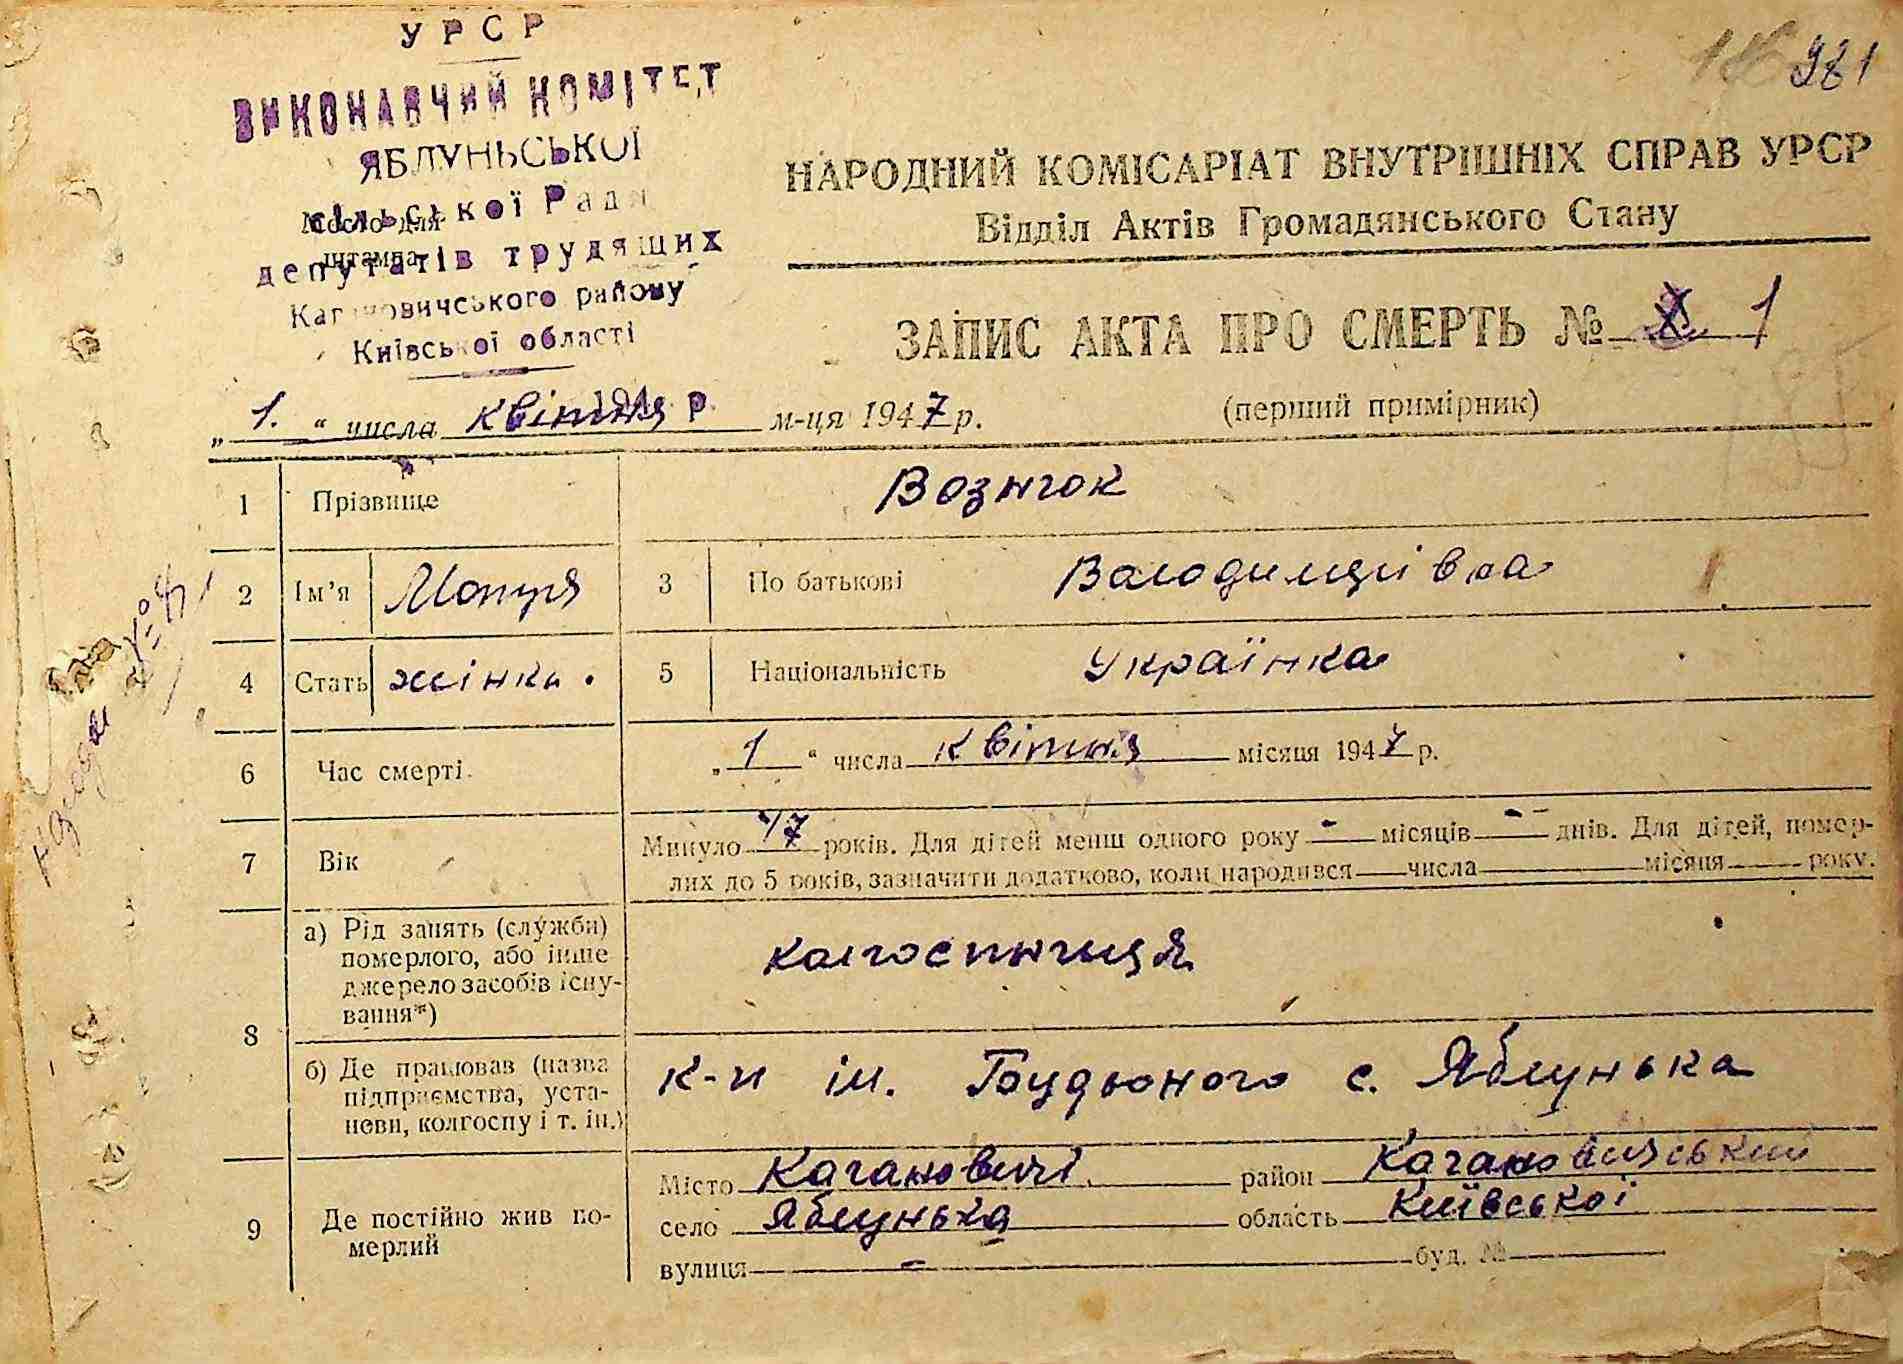 981
УРСР
ВИКОНАВЧИЙ КОМІТЕТ
ЯБЛУНЬСЬКОЇ
сільської Ради
депутатів трудящих
Кагановичського району
Київської області
Місце для
штампа
НАРОДНИЙ КОМІСАРІАТ ВНУТРІШНІХ СПРАВ УРСР
Відділ Актів Громадянського Стану
ЗАПИС АКТА ПРО СМЕРТЬ № 1
„ 1. “ числа квітня м-ця 1947 р.
(перший примірник)
1 Прізвище Вознюк
2 Ім'я Мотря 3 По батькові Володимирівна
4 Стать жінка. 5 Національність Українка
6 Час смерті. „ 1 “ числа квітня місяця 1947 р.
7 Вік Минуло 47 років. Для дітей менш одного року - місяців - днів. Для дітей, помер-
лих до 5 років, зазначити додатково, коли народився числа місяця року.
8 а) Рід занять (служби)
померлого, або інше
джерело засобів існу-
вання*)
колгоспниця
б) Де працював (назва
підприємства, уста-
нови, колгоспу і т. ін.)
к-п ім. Будьоного с. Яблунька
9 Де постійно жив по-
мерлий
Місто Кагановичі район Кагановичський
село Яблунька область Київської
вулиця - буд. №